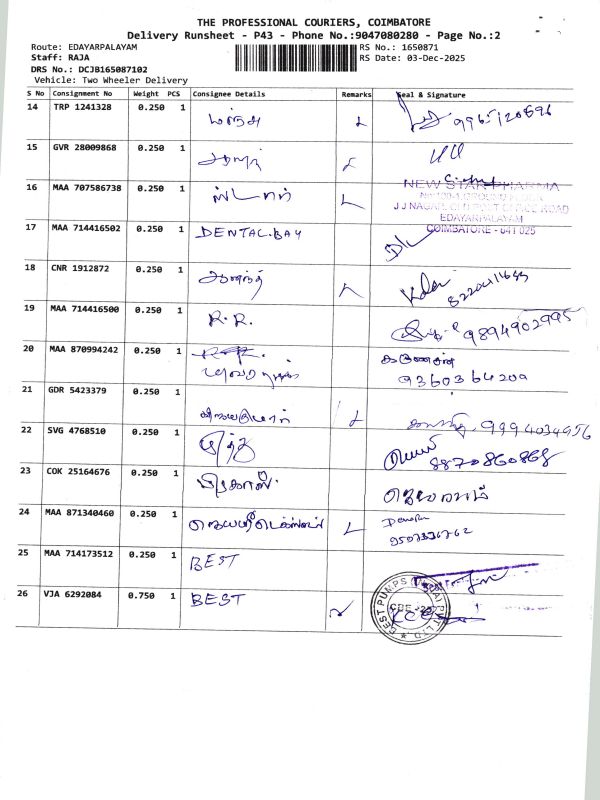 THE PROFESSIONAL COURIERS, COIMBATORE
Delivery Runsheet - P43 - Phone No.:9047080280 - Page No.:2
Route: EDAYARPALAYAM
Staff: RAJA
DRS No.: DCJB165087102
Vehicle: Two Wheeler Delivery
RS No.: 1650871
RS Date: 03-Dec-2025
S No Consignment No Weight PCS Consignee Details Remarks Seal & Signature
14 TRP 1241328 0.250 1 மஞ்சு 9965120896
15 GVR 28009868 0.250 1
16 MAA 707586738 0.250 1 ஸ்டார்
NEW STAR PHARMA
EDAYARPALAYAM
COIMBATORE - 641 025
17 MAA 714416502 0.250 1 DENTAL.BAY
18 CNR 1912872 0.250 1 ஆனந்த்
19 MAA 714416500 0.250 1 R.R. 9894902995
20 MAA 870994242 0.250 1 கருணேசன்
9360364209
21 GDR 5423379 0.250 1 விஜயகுமார் 9994034956
22 SVG 4768510 0.250 1 8870860868
23 COK 25164676 0.250 1 பிரகாஸ் ஜெயராம்
24 MAA 871340460 0.250 1 ஜெயஸ்ரீடெக்ஸ்டைல்
25 MAA 714173512 0.250 1 BEST
26 VJA 6292084 0.750 1 BEST
CBE - 29